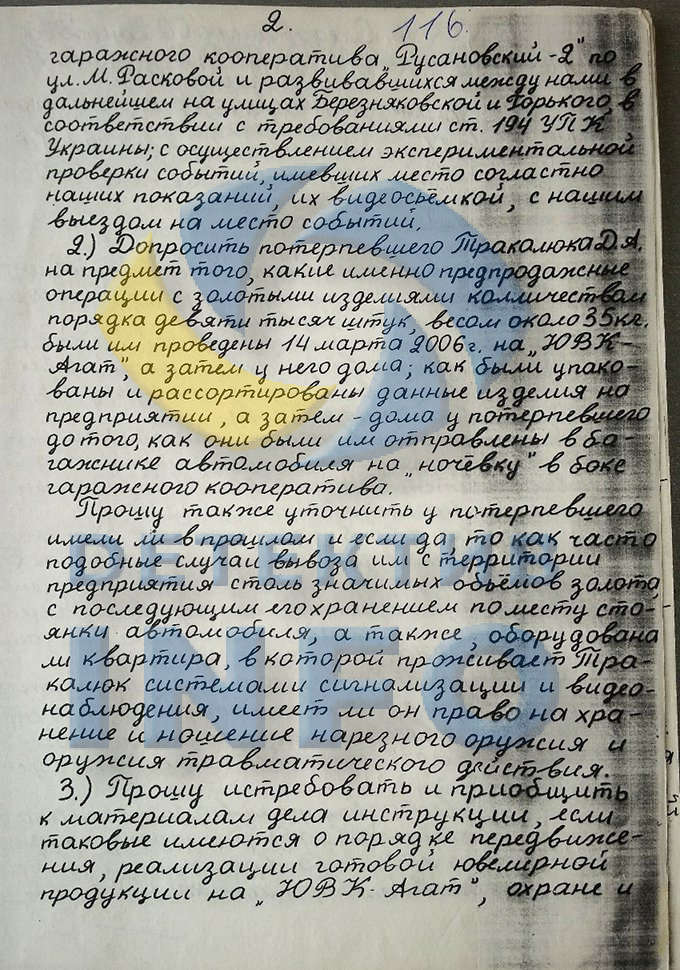 2.
116.
гаражного кооператива „Русановский-2" по
ул. М. Расковой и развивавшихся между нами в
дальнейшем на улицах Березняковской и Горького, в
соответствии с требованиями ст. 194 УПК
Украины; с осуществлением экспериментальной
проверки событий, имевших место согластно
наших показаний, их видеосъёмкой, с нашим
выездом на место событий.
2.) Допросить потерпевшего Тракалюка Д.А.
на предмет того, какие именно предпродажные
операции с золотыми изделиями колличеством
порядка девяти тысяч штук, весом около 35кг.
были им проведены 14 марта 2006г. на „ЮВК-
Агат", а затем у него дома; как были упако-
ваны и рассортированы данные изделия на
предприятии, а затем - дома у потерпевшего
до того, как они были им отправлены в ба-
гажнике автомобиля на „ночёвку" в бокс
гаражного кооператива.
Прошу также уточнить у потерпевшего
имели ли в прошлом и если да, то как часто
подобные случаи вывоза им с территории
предприятия столь значимых объёмов золота,
с последующим его хранением по месту сто-
янки автомобиля, а также, оборудована
ли квартира, в которой проживает Тра-
калюк системами сигнализации и видео-
наблюдения, имеет ли он право на хра-
нение и ношение нарезного оружия и
оружия травматического действия.
3.) Прошу истребовать и приобщить
к материалам дела инструкции, если
таковые имеются о порядке передвиже-
ния, реализации готовой ювелирной
продукции на „ЮВК-Агат", охране и
DETEKTIV
INFO